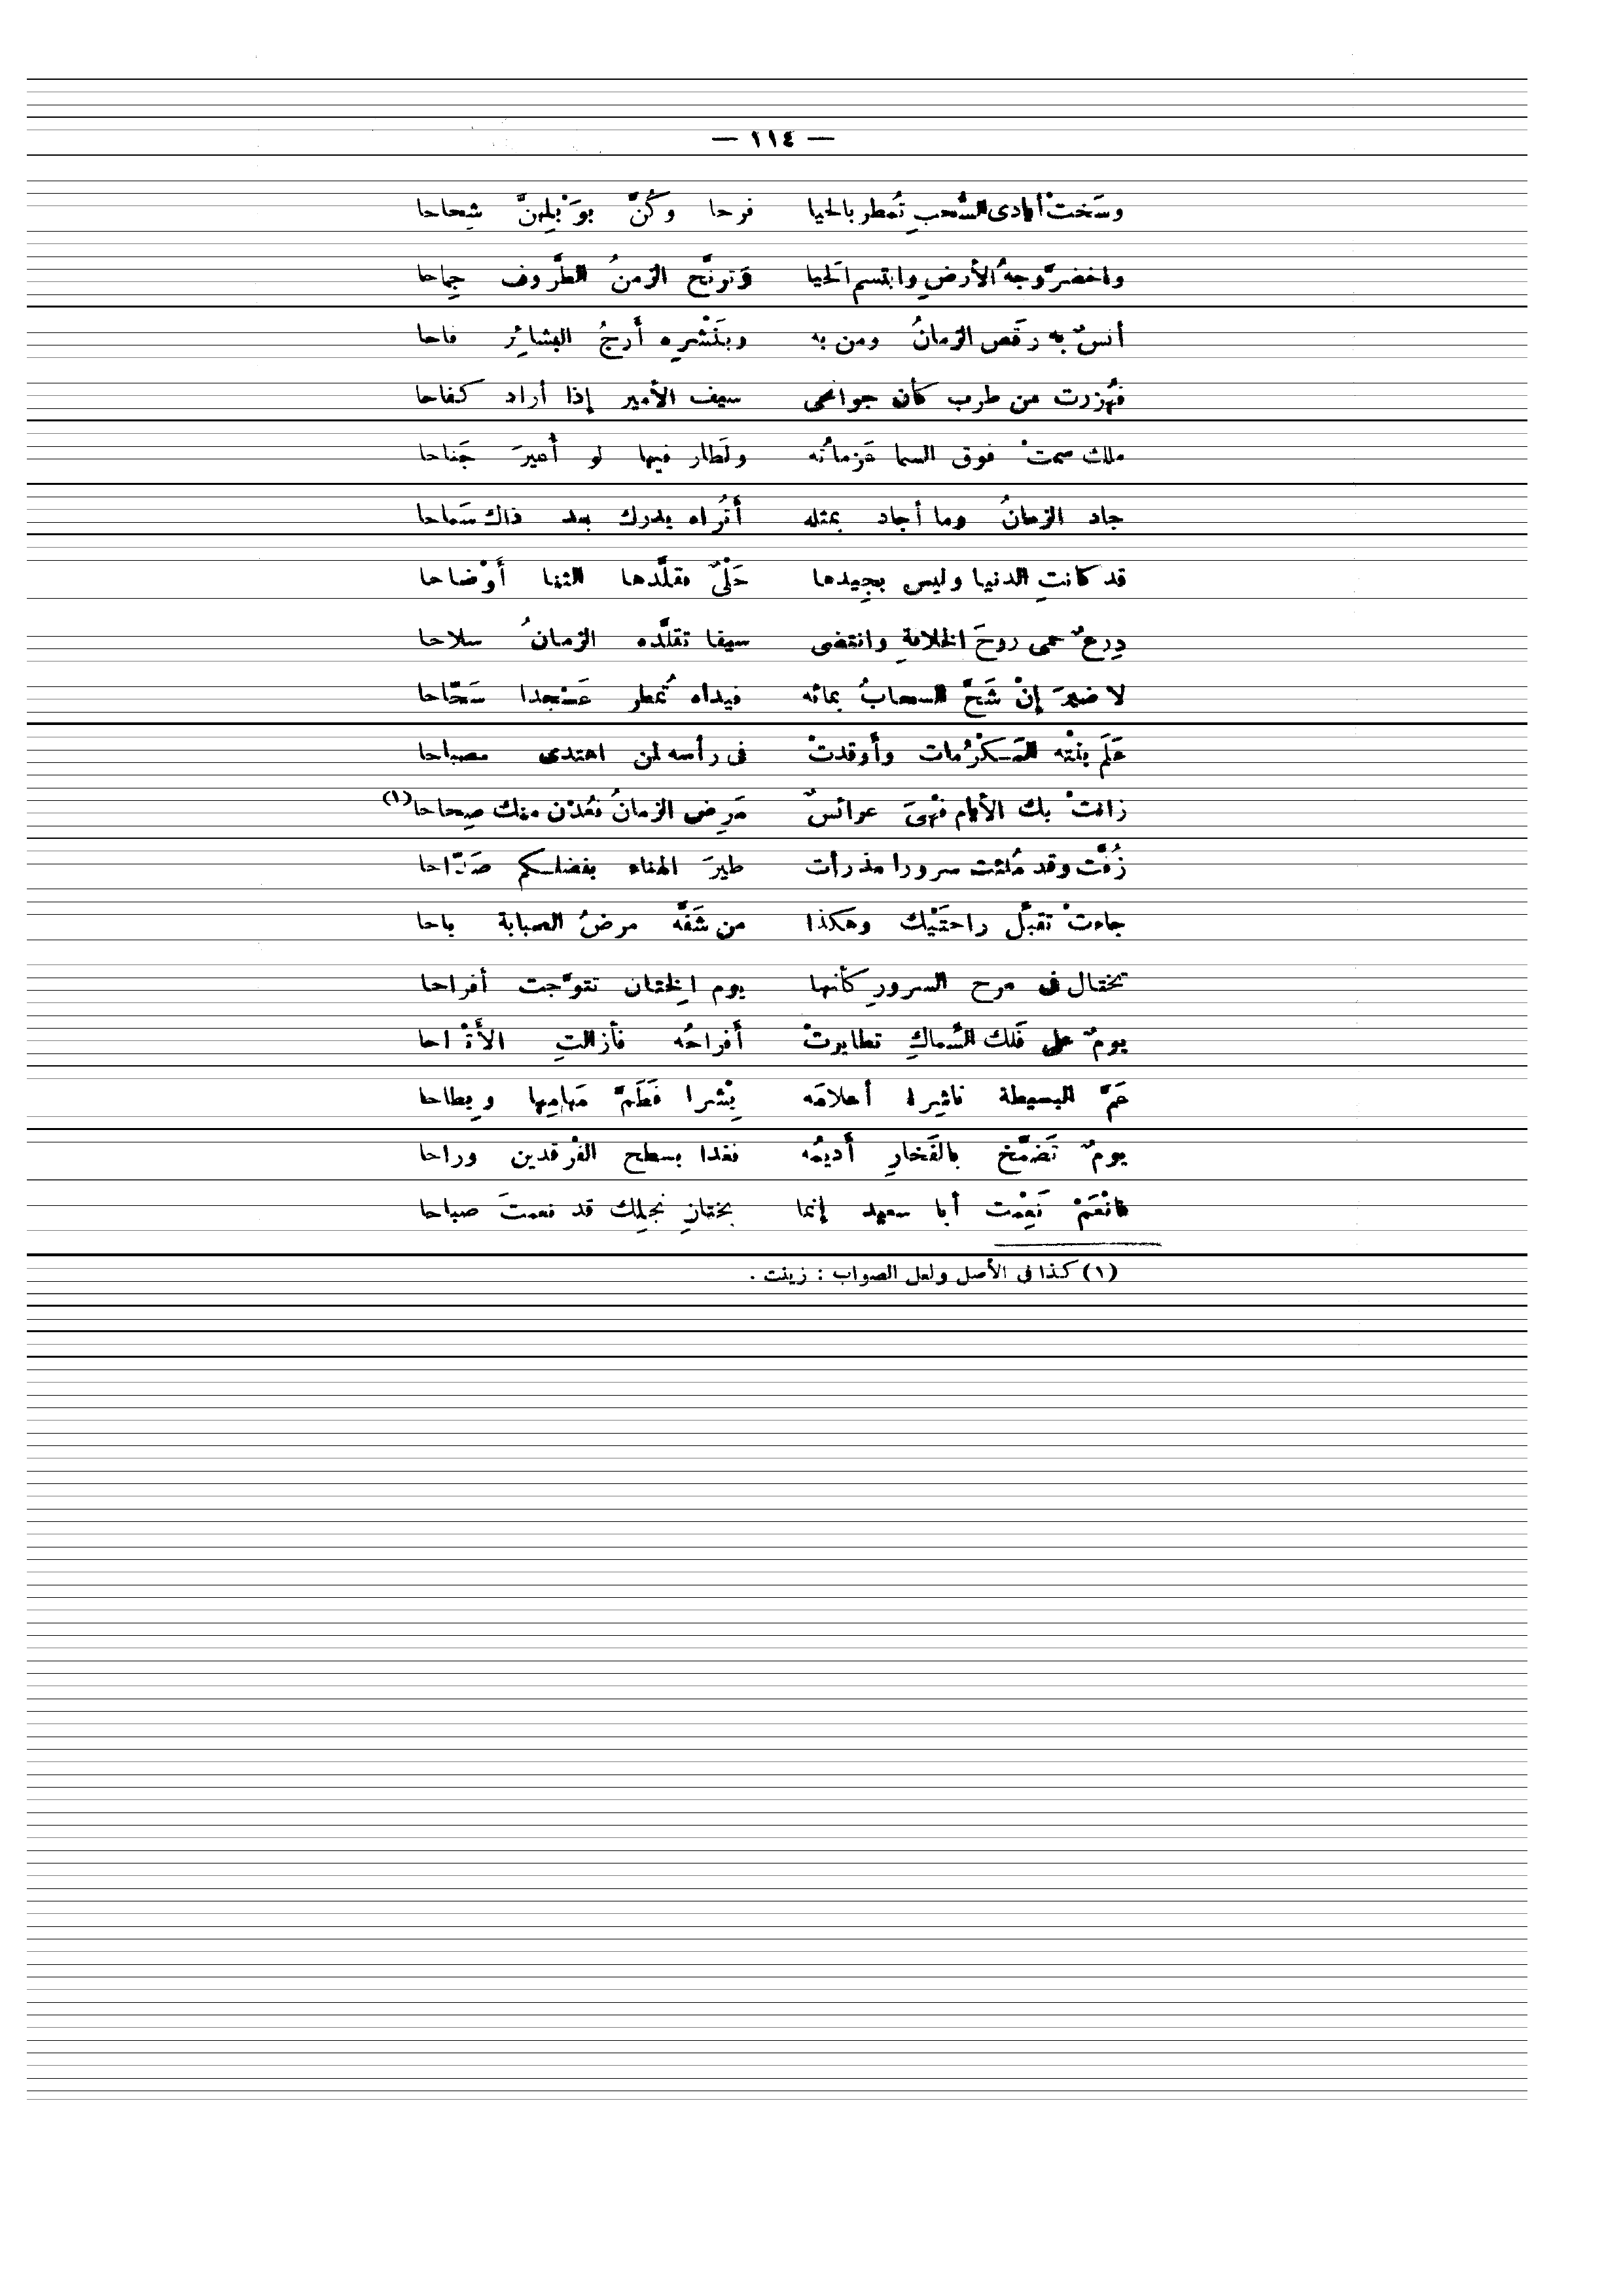 — ١١٤ —
وسَختْ أيادى السُّحبِ تُمطر بالحيا فرحا وكُنَّ بوَبْلِهنَّ شِحاحا
واخضرَّ وجهُ الأرضِ وابتسم الحَيا وَترنَّح الزمنُ الطَّروف جِماحا
أنسٌ به رقَص الزمانُ ومن به وبنَشْرِه أَرجُ البشائِر فاحا
فهُززت من طرب كأن جوانحى سيف الأمير إذا أراد كفاحا
ملك سمتْ فوق السما عَزماتُه ولَطار فيها لو أُعيرَ جَناحا
جاد الزمانُ وما أجاد بمثله أَتُراه يدرك بعد ذاك سَماحا
قد كانتِ الدنيا وليس بجِيدها حَلْىٌ مقلَّدها الثنا أَوْضاحا
دِرعٌ حمى روحَ الخلافةِ وانتضى سيفا تقلَّده الزمانُ سلاحا
لا ضيرَ إنْ شَحَّ السحابُ بمائه فيداه تُمطر عَسْجدا سَحّاحا
عَلَم بنتْه المَكْرُمات وأوقدتْ فى رأسه لمن اهتدى مصباحا
زانتْ بك الأيام فهْىَ عوائسٌ مَرِض الزمانُ فعُدْن منك صِحاحا (١)
زُفَّت وقد مُلئت سرورا مذ رأت طيرَ الهناء بفضلكم صَدّاحا
جاءتْ تقبِّل راحتَيْك وهكذا من شَفَّه مرضُ الصبابة باحا
تختال فى مرح السرورِ كأنها يوم الخِتان تتوّجت أفراحا
يومٌ على فَلك السِّماكِ تطايرتْ أَفراحُه فأزالتِ الأَتْراحا
عَمَّ البسيطة ناشِرا أعلامَه بِشْرا فَطَمَّ مَهامِها وبِطاحا
يومٌ تَضمَّخ بالفَخارِ أَديمُه فغدا بسطح الفَرْقدين وراحا
فانْعَمْ نَعِمْت أبا سعيد إنما بختانِ نجلِك قد نعمتَ صباحا
(١) كذا فى الأصل ولعل الصواب : زينت .